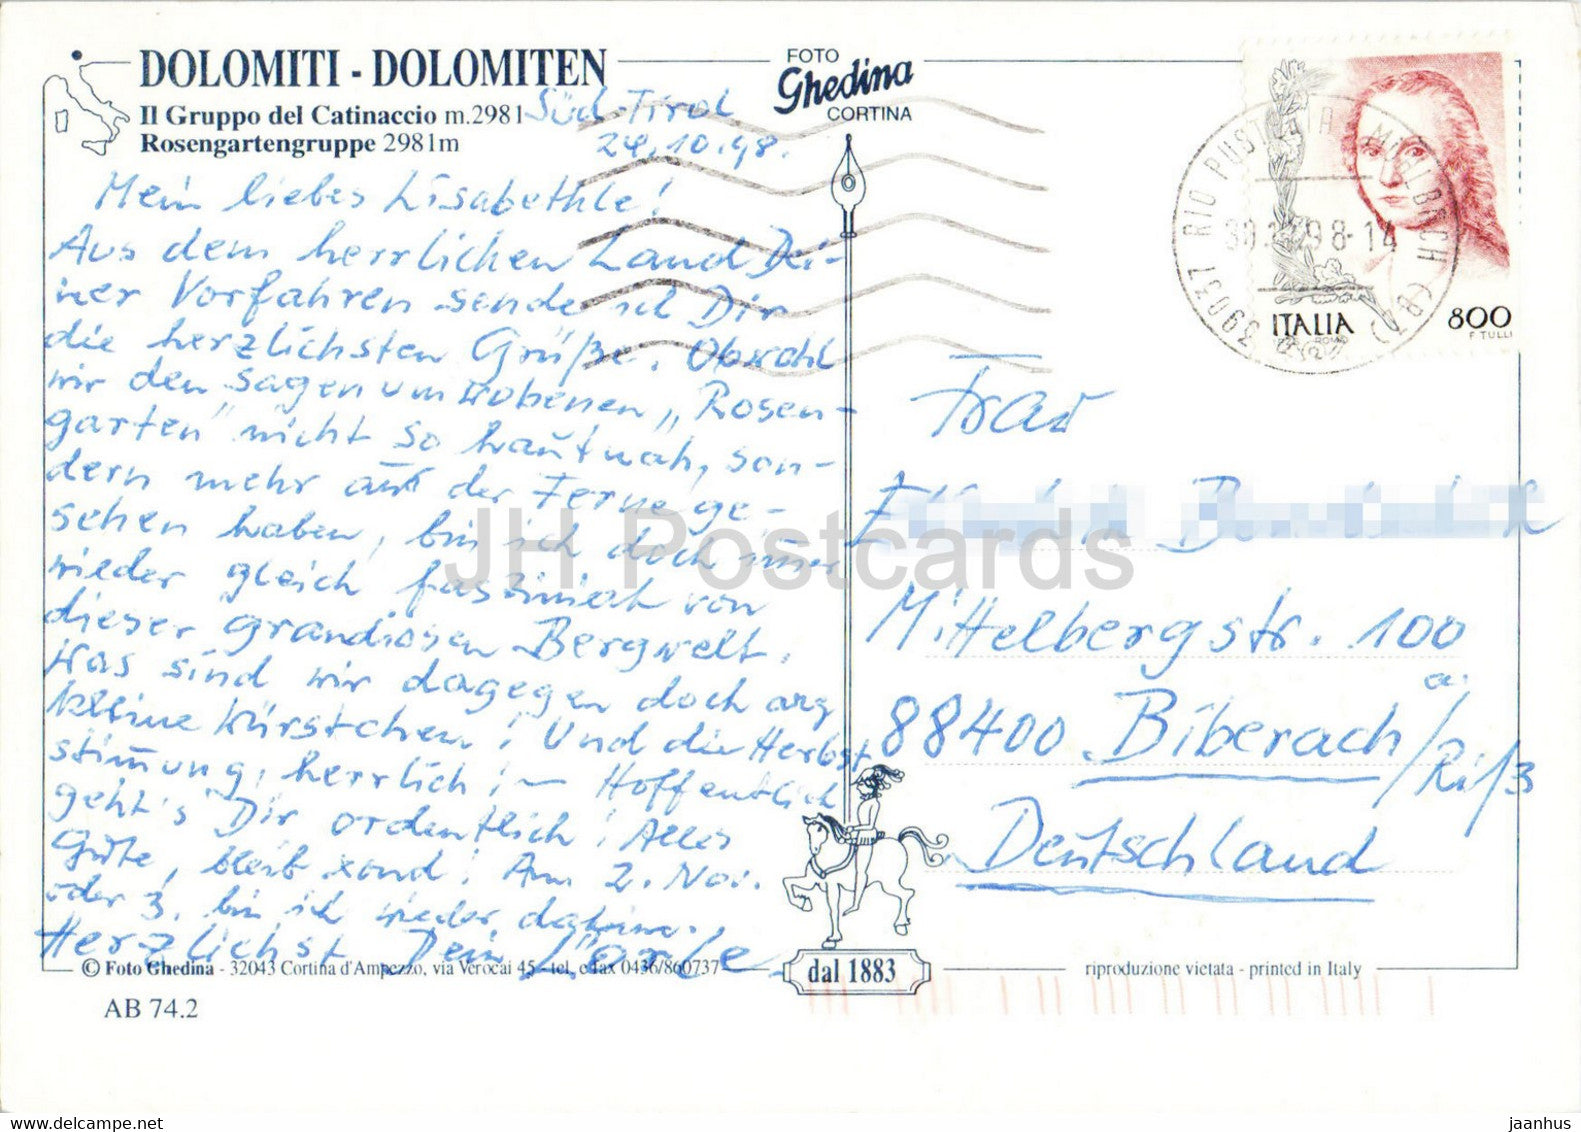 DOLOMITI - DOLOMITEN
Il Gruppo del Catinaccio m.2981
Rosengartengruppe 2981m
FOTO
Ghedina
CORTINA
Süd-Tirol
24.10.98.
Mein liebes Lisabethle!
Aus dem herrlichen Land Dei-
ner Vorfahren sende ich Dir
die herzlichsten Grüße. Obwohl
wir den sagenumwobenen „Rosen-
garten" nicht so hautnah, son-
dern mehr aus der Ferne ge-
sehen haben, bin ich doch immer
wieder gleich fasziniert von
dieser grandiosen Bergwelt.
Was sind wir dagegen doch arg
kleine Würstchen! Und die Herbst
stimmung, herrlich! – Hoffentlich
geht's Dir ordentlich! Alles
Gute, bleib xond! Am 2. Nov.
oder 3. bin ich wieder daheime.
Herzlichst Dein Lorle
ITALIA
800
F. TULLI
39037 RIO PUSTERIA MÜHLBACH (BZ)
98-14
Frau
Mittelbergstr. 100
88400 Biberach/Riß 3
a.
Deutschland
JH Postcards
© Foto Ghedina - 32043 Cortina d'Ampezzo, via Verocai 45 - tel. e fax 0436/860737
dal 1883
riproduzione vietata - printed in Italy
AB 74.2
jaanhus @ delcampe.net